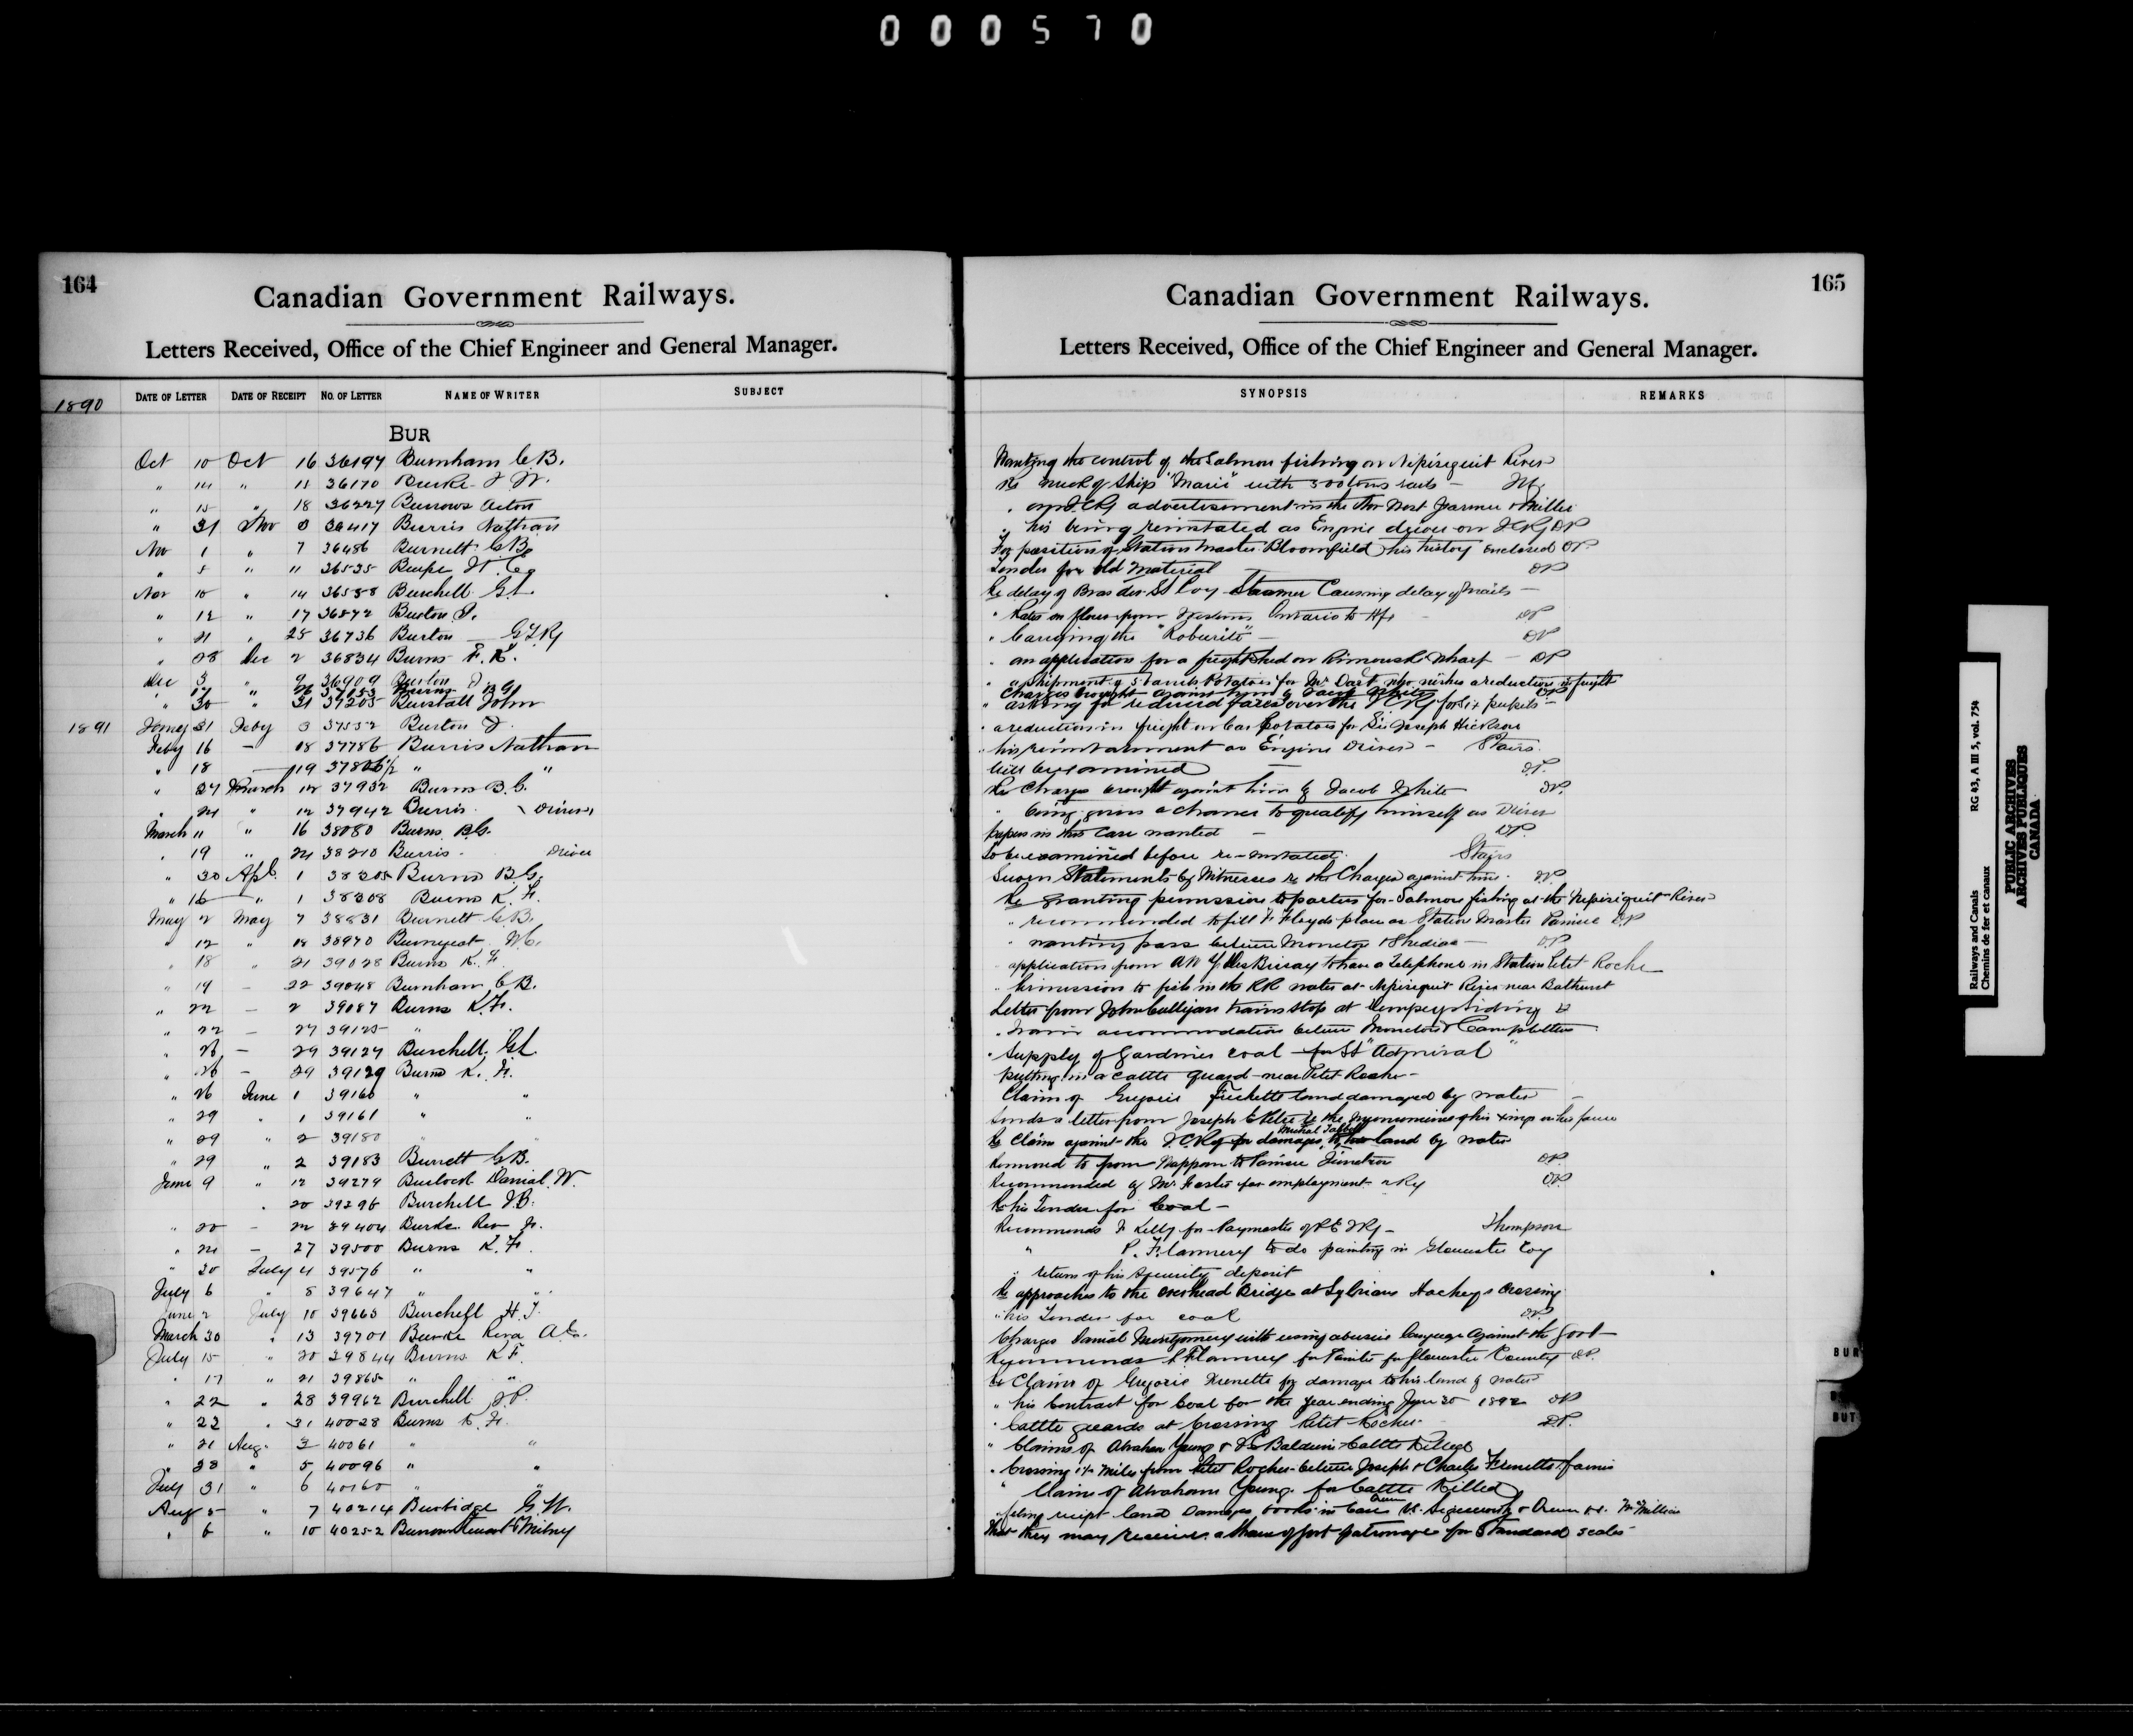 000570
164
Canadian Government Railways.
Letters Received, Office of the Chief Engineer and General Manager.
1890 DATE OF LETTER DATE OF RECEIPT NO. OF LETTER NAME OF WRITER SUBJECT
BUR
Oct 10 Oct 16 36194 Burnham C B.
" 14 " 18 36170 Burke J W.
" 15 " 18 36227 Burrows Acton
" 31 Nov 3 36417 Burris Nathan
Nov 1 " 7 36486 Burnett G B
" 5 " 11 36535
Nov 10 " 14 36558 Burchell G L
" 12 " 17 36572 Burton J.
" 21 " 25 36736 Burton GTRy
" 28 Dec 2 36834 Burns K. F.
Dec 3 " 9 36909 Burton J
" 30 " 31 37205 Burstall John
1891 Jany 31 Feby 3 37552 Burton J.
Feby 16 – 18 37786 Burris Nathan
" 18 – 19 " "
" 27 March 12 37932 Burns B. G.
" 24 " 12 37942 Burris Driver
March 11 " 16 38080 Burns B G.
" 19 " 24 38210 Burris. Driver
" 30 Apl. 1 38205 Burns B G.
" 16 " 1 38308 Burns K. F.
May 2 May 7 38831 Burnett G B.
" 12 " 18 38970
" 18 " 21 39028 Burns K. F.
" 19 – 22 39048 Burnham C B.
" 22 – 2 39087 Burns K. F.
" 22 – 27 39125 "
" 26 – 29 39127 Burchell. G L
" 26 – 29 39129 Burns K. F.
" 26 June 1 39160 " "
" 29 " 1 39161 " "
" 29 " 2 39180 " "
" 29 " 2 39183 Burnett G B.
June 9 " 12 39279 Daniel W.
" 20 39296 Burchell J B.
" 20 – 22 39404 Burke Rev F.
" 24 – 27 39500 Burns K. F.
" 30 July 4 39576 " "
July 6 " 8 39647 " "
June 2 July 10 39665 Burchell H. T.
March 30 " 13 39701 Burke
July 15 " 20 29844 Burns K F.
" 17 " 21 39865 " "
" 22 " 28 39962 Burchell J P.
" 22 " 31 40028 Burns K. F.
" 21 Aug. 3 40061 " "
" 28 " 5 40096 " "
July 31 " 6 40160 " "
Aug 5 " 7 40214 Burbidge G W.
" 6 " 10 40252 Burrow Stewart & Milney
165
Canadian Government Railways.
Letters Received, Office of the Chief Engineer and General Manager.
SYNOPSIS REMARKS
Wanting the control of the Salmon fishing on Nipisiguit River
Re wreck of Ship "Marie" with 500 tons rails –
" an ICRy advertisement in the Nor West Farmer & Miller
" his being reinstated as Engine driver on ICRy DP
For position of Station Master Bloomfield his history enclosed DP.
Tender for old Material DP
Re delay of Bras dor St Coy Steamer Causing delay of mails –
" Rates on flour from Western Ontario to Hfx DP
" Carrying the "Roburite" – DP
" an application for a freight shed on Rimouski Wharf – DP
" a shipment of Potatoes for Mr Dart who wishes a reduction in freight
Charges brought against him by Jacob White DP
" asking for reduced fares over the ICRy for
" a reduction in freight on Car Potatoes for Sir Joseph Hickson
" his reinstatement as Engine Driver – Stairs.
Will be examined – DP.
Re Charges brought against him by Jacob White DP.
" being given a chance to qualify himself as Driver
papers in this Case wanted – DP.
To be examined before re-instated. Stairs
Sworn Statements by Witnesses re the Charges against him. DP
Re granting permission to parties for Salmon fishing at the Nepisiguit River
" recommended to fill F Floyds place as Station Master Painsec DP
" wanting pass between Moncton & Shediac – DP
application from A W DesBrisay to have a Telephone in Station Petit Roche
" Permission to fish in the RR water at Nepisiguit River near Bathurst
Letter from John Culligan trains stop at Dempsey Siding
" Train accommodation between Moncton & Campbellton
" Supply of Gardiner coal for St "Admiral"
" putting in a cattle guard near Petit Roche –
Claim of Gregoire land damaged by water –
Sends a letter from Joseph re the of his
Michal Talbot
Re Claim against the ICRy for damages to land by water
Removed to from Nappan to Painsec Junction DP.
Recommended by Mr Foster for employment Ry DP.
Re his Tender for Coal –
Recommends F Kelly for Paymaster of PEIRy – Thompson
" P. Flannery to do painting in Gloucester Coy
" return of his security deposit
Re approaches to the overhead Bridge at Sylvians Hacheys Crossing
" his Tender for coal DP.
Charges Daniel Montgomery with using abusive language against the Govt
Recommends P Flannery for Painter for Gloucester County DP.
Re Claim of Gregoire Frenette for damage to his land by water
" his Contract for Coal for the Year ending June 30 1892 DP
" Cattle guards at Crossing Petit Rocher DP.
" Claims of Abraham Young & Baldwin Cattle Killed
" Crossing 1¼ Miles from Petit Rocher between Joseph & Charles Frenette farms
" Claim of Abraham Young for Cattle Killed
That they may receive a share of Govt patronage for Standard scales
BUR
BUT
Railways and Canals RG 43, A III 5, vol. 754
Chemins de fer et canaux
PUBLIC ARCHIVES
ARCHIVES PUBLIQUES
CANADA